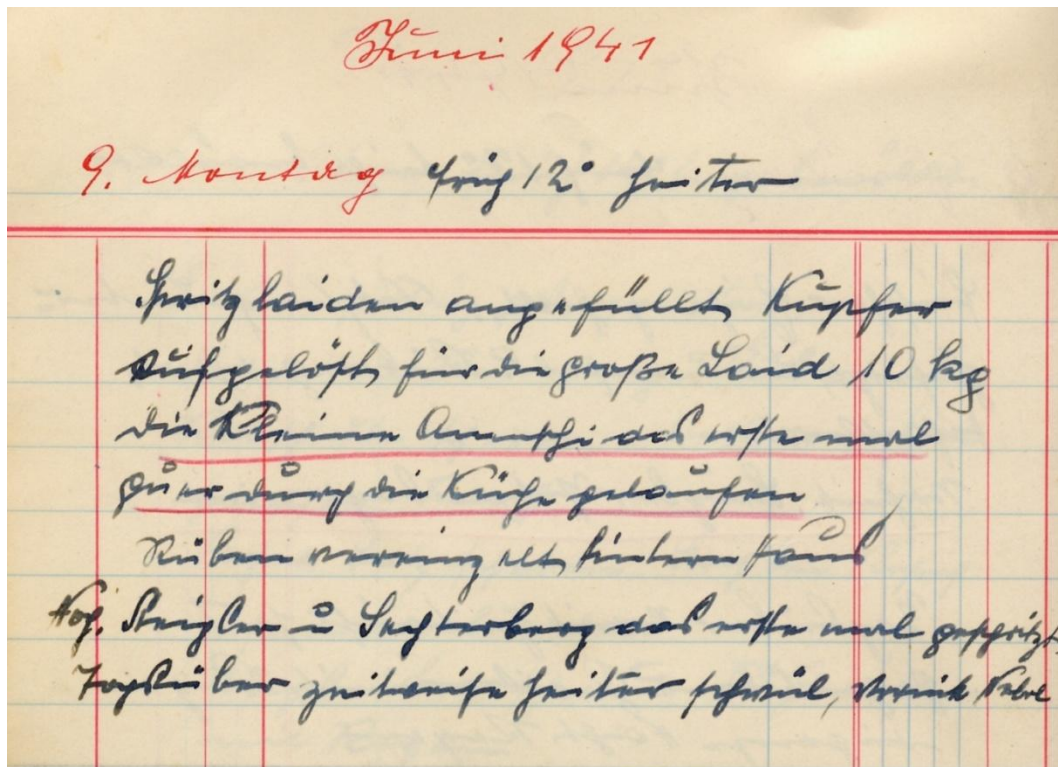 Juni 1941
9. Montag früh 12° heiter
Spritzlaiden angefüllt, Kupfer
aufgelöst, für die große Laid 10 kg
die Kleine Annuschi das erste mal
quer durch die Küche gelaufen
Rüben vereinzelt, hintern Haus
u Sechterberg das erste mal gespritzt.
Tagsüber zeitweise heiter schwül,